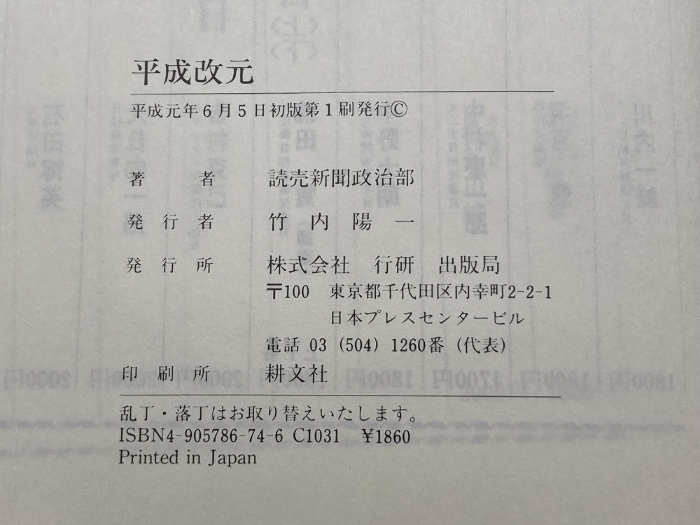 平成改元
平成元年6月5日初版第1刷発行©
著 者 読売新聞政治部
発 行 者 竹 内 陽 一
発 行 所 株式会社 行研 出版局
〒100 東京都千代田区内幸町2-2-1
日本プレスセンタービル
電話 03 (504) 1260番 (代表)
印 刷 所 耕文社
乱丁・落丁はお取り替えいたします。
ISBN4-905786-74-6 C1031 ¥1860
Printed in Japan